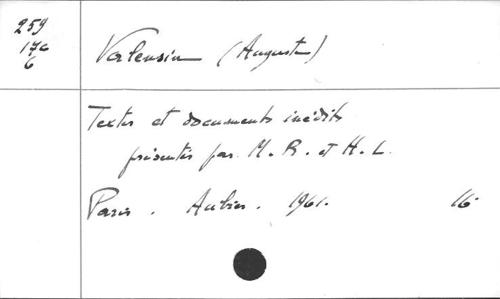 259
170
6
Valensin (Auguste)
Textes et documents inédits
présentés par M. R. et H. L.
Paris. Aubier. 1961. 16